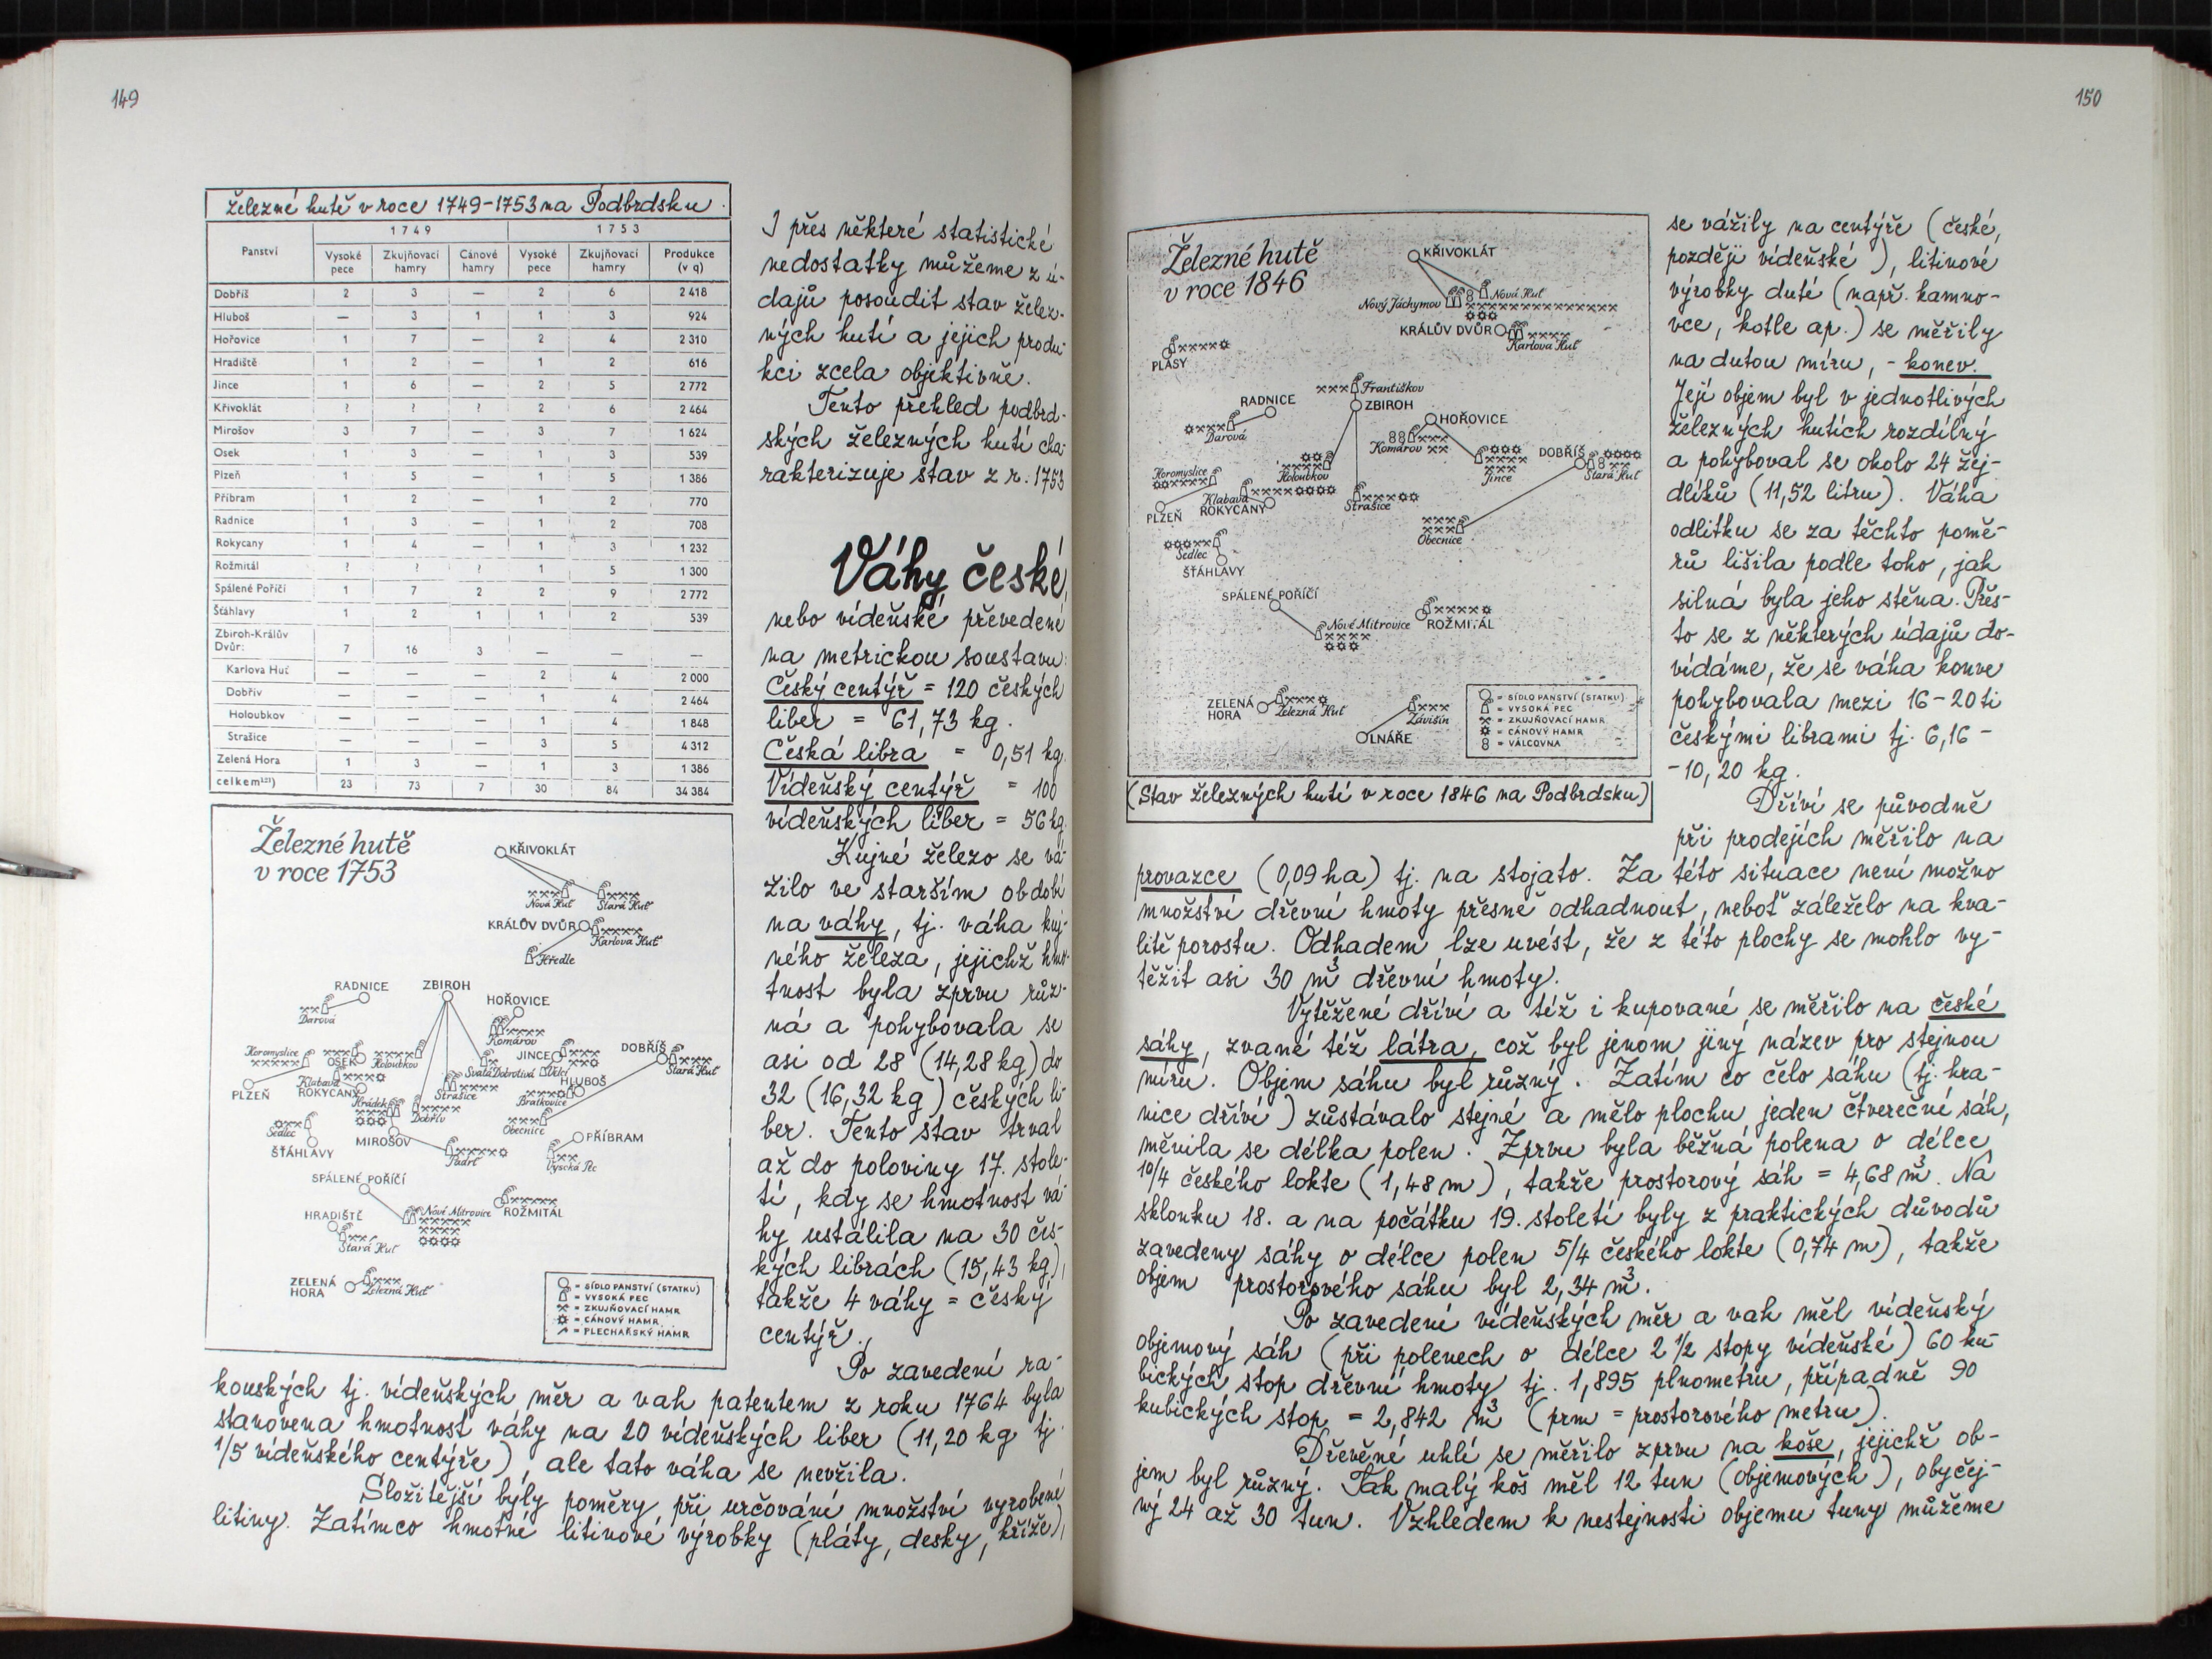 149
Železné hutě v roce 1749-1753 na Podbrdsku.
Panství 1749 1753
Vysoké pece Zkujňovací hamry Cánové hamry Vysoké pece Zkujňovací hamry Produkce (v q)
Dobříš 2 3 — 2 6 2 418
Hluboš — 3 1 1 3 924
Hořovice 1 7 — 2 4 2 310
Hradiště 1 2 — 1 2 616
Jince 1 6 — 2 5 2 772
Křivoklát ? ? ? 2 6 2 464
Mirošov 3 7 — 3 7 1 624
Osek 1 3 — 1 3 539
Plzeň 1 5 — 1 5 1 386
Příbram 1 2 — 1 2 770
Radnice 1 3 — 1 2 708
Rokycany 1 4 — 1 3 1 232
Rožmitál ? ? ? 1 5 1 300
Spálené Poříčí 1 7 2 2 9 2 772
Šťáhlavy 1 2 1 1 2 539
Zbiroh-Králův
Dvůr: 7 16 3 — — —
Karlova Huť — — — 2 4 2 000
Dobřív — — — 1 4 2 464
Holoubkov — — — 1 4 1 848
Strašice — — — 3 5 4 312
Zelená Hora 1 3 — 1 3 1 386
celkem 23 73 7 30 84 34 384
Železné hutě
v roce 1753
KŘIVOKLÁT
Nová Huť
Stará Huť
KRÁLŮV DVŮR
Karlova Huť
Hředle
RADNICE
ZBIROH
HOŘOVICE
Darová
Komárov
Horomyslice
OSEK
Holoubkov
JINCE
DOBŘÍŠ
Stará Huť
Svatá Dobrotivá
Velcí
Klabava
HLUBOŠ
PLZEŇ
ROKYCANY
Strašice
Hrádek
Bratkovice
Dobřív
Obecnice
Sedlec
MIROŠOV
PŘÍBRAM
ŠŤÁHLAVY
Padrť
Vysoká Pec
SPÁLENÉ POŘÍČÍ
HRADIŠTĚ
Nové Mitrovice
ROŽMITÁL
Stará Huť
ZELENÁ
HORA
Železná Huť
= SÍDLO PANSTVÍ (STATKU)
= VYSOKÁ PEC
= ZKUJŇOVACÍ HAMR
= CÁNOVÝ HAMR
= PLECHAŘSKÝ HAMR
I přes některé statistické
nedostatky můžeme z ú-
dajů posoudit stav želez-
ných hutí a jejich produ-
kci zcela objektivně.
Tento přehled podbrd-
ských železných hutí cha-
rakterizuje stav z r. 1753
Váhy české,
nebo vídeňské převedené
na metrickou soustavu:
Český centýř = 120 českých
liber = 61,73 kg.
Česká libra = 0,51 kg.
Vídeňský centýř = 100
vídeňských liber = 56 kg.
Kujné železo se vá-
žilo ve starším období
na váhy, tj. váha kuj-
ného železa, jejichž hmo-
tnost byla zprvu růz-
ná a pohybovala se
asi od 28 (14,28 kg) do
32 (16,32 kg) českých li-
ber. Tento stav trval
až do poloviny 17. stole-
tí, kdy se hmotnost vá-
hy ustálila na 30 čes-
kých librách (15,43 kg),
takže 4 váhy = český
centýř.
Po zavedení ra-
kouských tj. vídeňských měr a vah patentem z roku 1764 byla
stanovena hmotnost váhy na 20 vídeňských liber (11,20 kg tj.
1/5 vídeňského centýře), ale tato váha se nevžila.
Složitější byly poměry při určování množství vyrobené
litiny. Zatímco hmotné litinové výrobky (pláty, desky, kříže),
150
Železné hutě
v roce 1846
KŘIVOKLÁT
Nový Jáchymov
Nová Huť
KRÁLŮV DVŮR
Karlova Huť
PLASY
Františkov
RADNICE
ZBIROH
HOŘOVICE
Darová
Komárov
DOBŘÍŠ
Horomyslice
Holoubkov
Jince
Stará Huť
Klabava
PLZEŇ
ROKYCANY
Strašice
Obecnice
Sedlec
ŠŤÁHLAVY
SPÁLENÉ POŘÍČÍ
Nové Mitrovice
ROŽMITÁL
ZELENÁ
HORA
Železná Huť
Závišín
LNÁŘE
= SÍDLO PANSTVÍ (STATKU)
= VYSOKÁ PEC
= ZKUJŇOVACÍ HAMR
= CÁNOVÝ HAMR
= VÁLCOVNA
(Stav železných hutí v roce 1846 na Podbrdsku)
se vážily na centýře (české,
později vídeňské), litinové
výrobky duté (např. kamno-
vce, kotle ap.) se měřily
na dutou míru, - konev.
Její objem byl v jednotlivých
železných hutích rozdílný
a pohyboval se okolo 24 žej-
dlíků (11,52 litru). Váha
odlitku se za těchto pomě-
rů lišila podle toho, jak
silná byla jeho stěna. Přes-
to se z některých údajů do-
vídáme, že se váha konve
pohybovala mezi 16-20ti
českými librami tj. 6,16 -
-10,20 kg.
Dříví se původně
při prodejích měřilo na
provazce (0,09 ha) tj. na stojato. Za této situace není možno
množství dřevní hmoty přesně odhadnout, neboť záleželo na kva-
litě porostu. Odhadem lze uvést, že z této plochy se mohlo vy-
těžit asi 30 m³ dřevní hmoty.
Vytěžené dříví a též i kupované se měřilo na české
sáhy, zvané též látra, což byl jenom jiný název pro stejnou
míru. Objem sáhu byl různý. Zatím co čelo sáhu (tj. hra-
nice dříví) zůstávalo stejné a mělo plochu jeden čtvereční sáh,
měnila se délka polen. Zprvu byla běžná polena o délce
10/4 českého lokte (1,48 m), takže prostorový sáh = 4,68 m³. Na
sklonku 18. a na počátku 19. století byly z praktických důvodů
zavedeny sáhy o délce polen 5/4 českého lokte (0,74 m), takže
objem prostorového sáhu byl 2,34 m³.
Po zavedení vídeňských měr a vah měl vídeňský
objemový sáh (při polenech o délce 2 1/2 stopy vídeňské) 60 ku-
bických stop dřevní hmoty tj. 1,895 plnometru, případně 90
kubických stop = 2,842 m³ (prm = prostorového metru).
Dřevěné uhlí se měřilo zprvu na koše, jejichž ob-
jem byl různý. Tak malý koš měl 12 tun (objemových), obyčej-
ný 24 až 30 tun. Vzhledem k nestejnosti objemu tuny můžeme